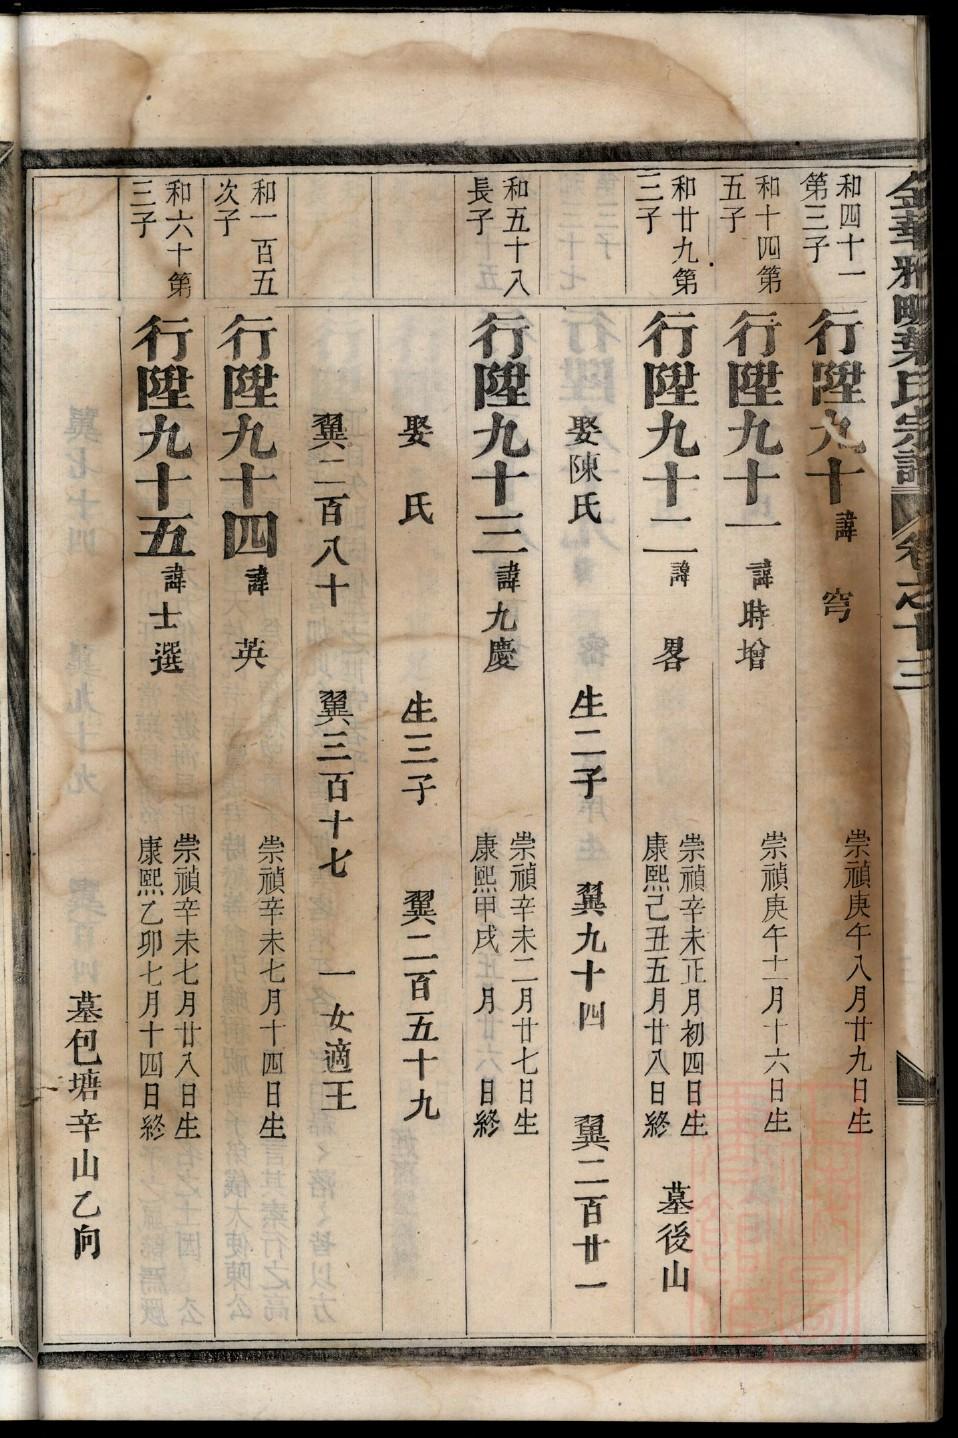 金華雅畈葉氏宗譜 卷之十三
和四十一
第三子
行陞九十 諱 穹
崇禎庚午八月廿九日生
和十四第
五子
行陞九十一 諱時增
崇禎庚午十一月十六日生
和廿九第
三子
行陞九十二 諱 畧
崇禎辛未正月初四日生
康熙己丑五月廿八日終
墓後山
娶陳氏 生二子 翼九十四 翼二百廿一
和五十八
長子
行陞九十三 諱九慶
崇禎辛未二月廿七日生
康熙甲戌 月 日終
娶 氏 生三子 翼二百五十九
翼二百八十 翼三百十七 一女適王
和一百五
次子
行陞九十四 諱 英
崇禎辛未七月十四日生
和六十第
三子
行陞九十五 諱士選
崇禎辛未七月廿八日生
康熙乙卯七月十四日終
墓包塘辛山乙向